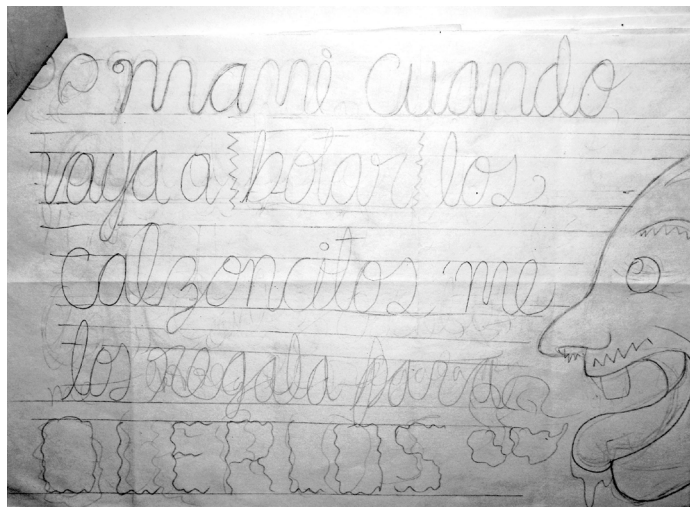 mami cuando
vaya a botar los
calzoncitos me
los regala para
OLERLOS